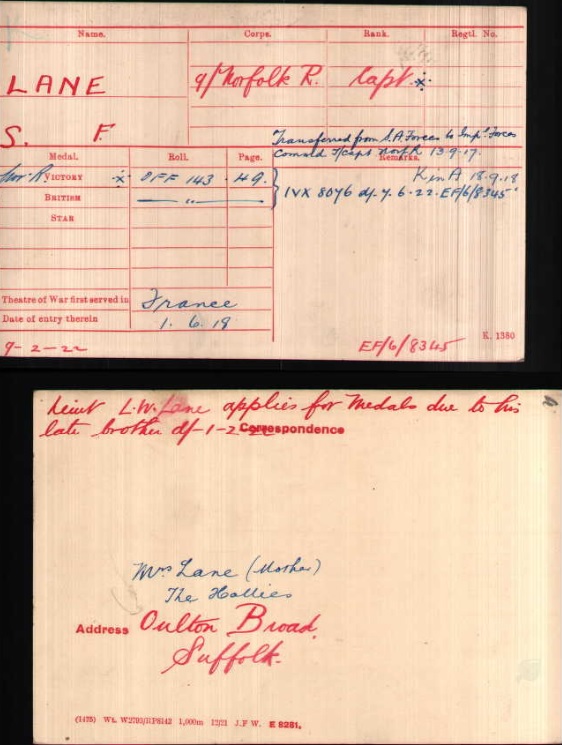 Name. Corps. Rank. Regtl. No.
LANE 9/Norfolk R. Capt.
S. F.
Transferred from S.A. Forces to Impl. Forces
Comssd T/Capt Norf R 13-9-17.
Medal. Roll. Page. Remarks.
VICTORY OFF 143 49. K in A 18.9.18
BRITISH — " — IVX 8076 df 7.6.22. EF/6/8345
STAR
Theatre of War first served in France
Date of entry therein 1. 6. 18
K. 1380
9-2-22 EF/6/8345
Lieut L.W. Lane applies for Medals due to his
late brother df-1-2-22
Correspondence
Mrs Lane (Mother)
The Hollies
Address Oulton Broad,
Suffolk.
(1475) Wt. W2793/RP8142 1,000m 12/21 J.F.W. E 8281.